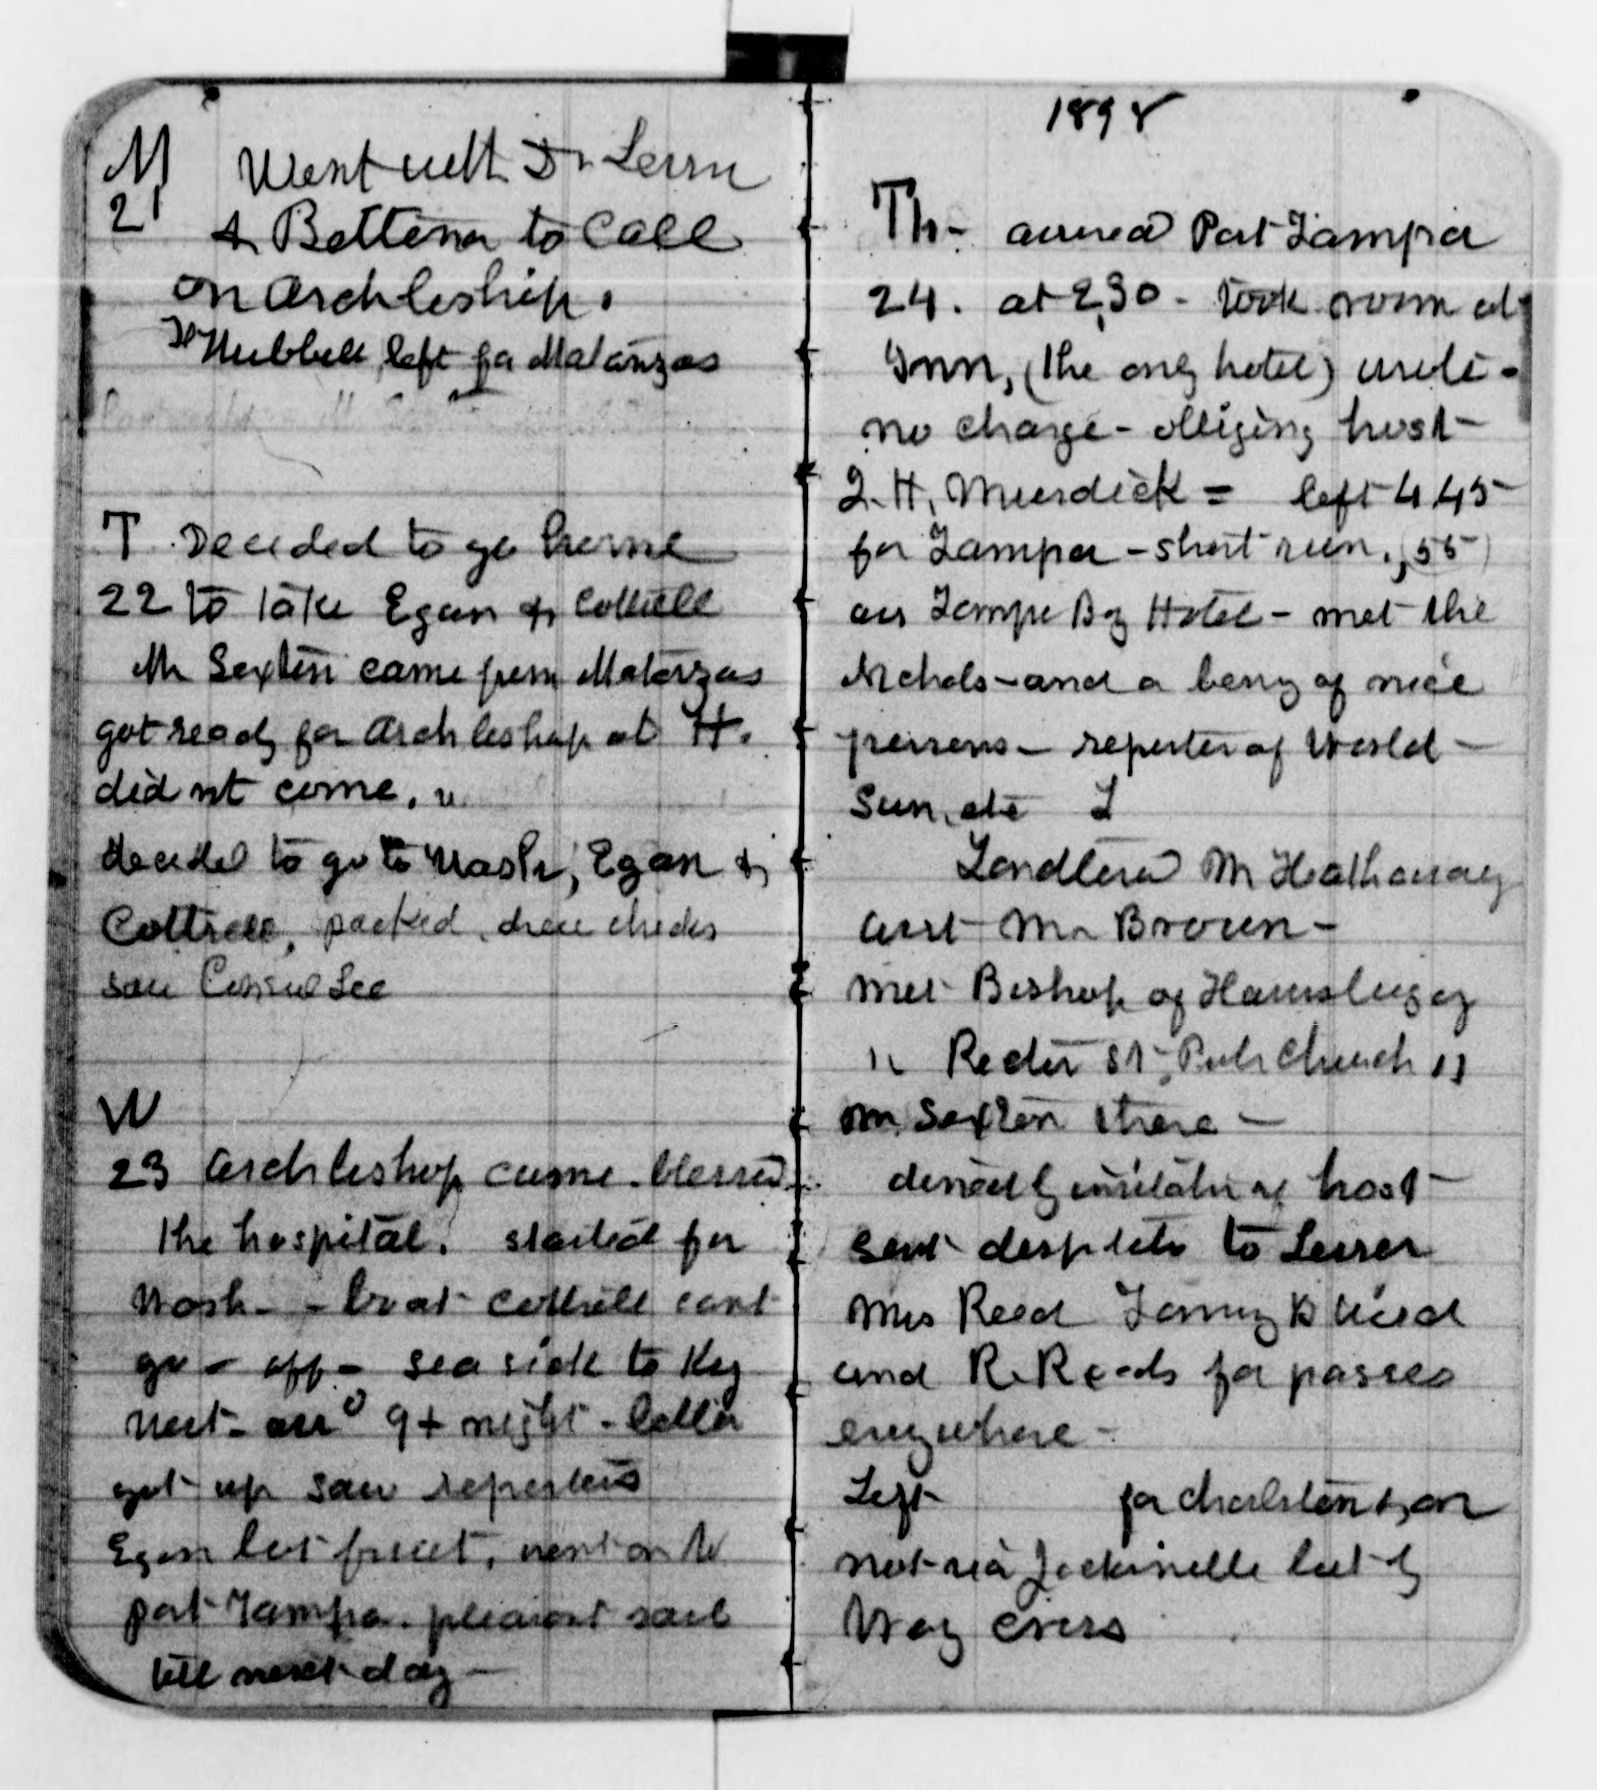 M Went with Dr Lesser
21 & Bettina to Call
on Archbishop.
Dr Hubbell left for Matanzas
T Decided to go home
22 to take Egan & Cottrell
Mr Sexton came from Matanzas
got ready for Archbishop at H.
did nt come.
decided to go to Wash, Egan &
Cottrell, packed, drew checks
saw Consul Lee
W
23 Archbishop came. blessed
the hospital. started for
Wash - - boat Cottrell cant
go - off - sea sick to Key
West - arr 9+ night - better
got up saw reporters
Egan bot fruit, went on to
port Tampa. pleasant sail
till next day -
1898
Th - arrived Port Tampa
24. at 2,30 - took room at
Inn, (the only hotel)
no charge - obliging host -
J. H. Murdick = left 4 45
for Tampa - short run, (55)
arr Tampa Bay Hotel - met the
Nichols - and a bevy of nice
persons - reporter of World -
Sun, etc
Landlord Mr Hathaway
asst Mr Brown -
met Bishop of
" Rector St Church "
Mr. Sexton there -
dined by invitation of host -
sent to Lesser
Mrs Reed
and R. Roads for passes
everywhere -
Left for Charleston &
not via Jacksonville but by
Way cross